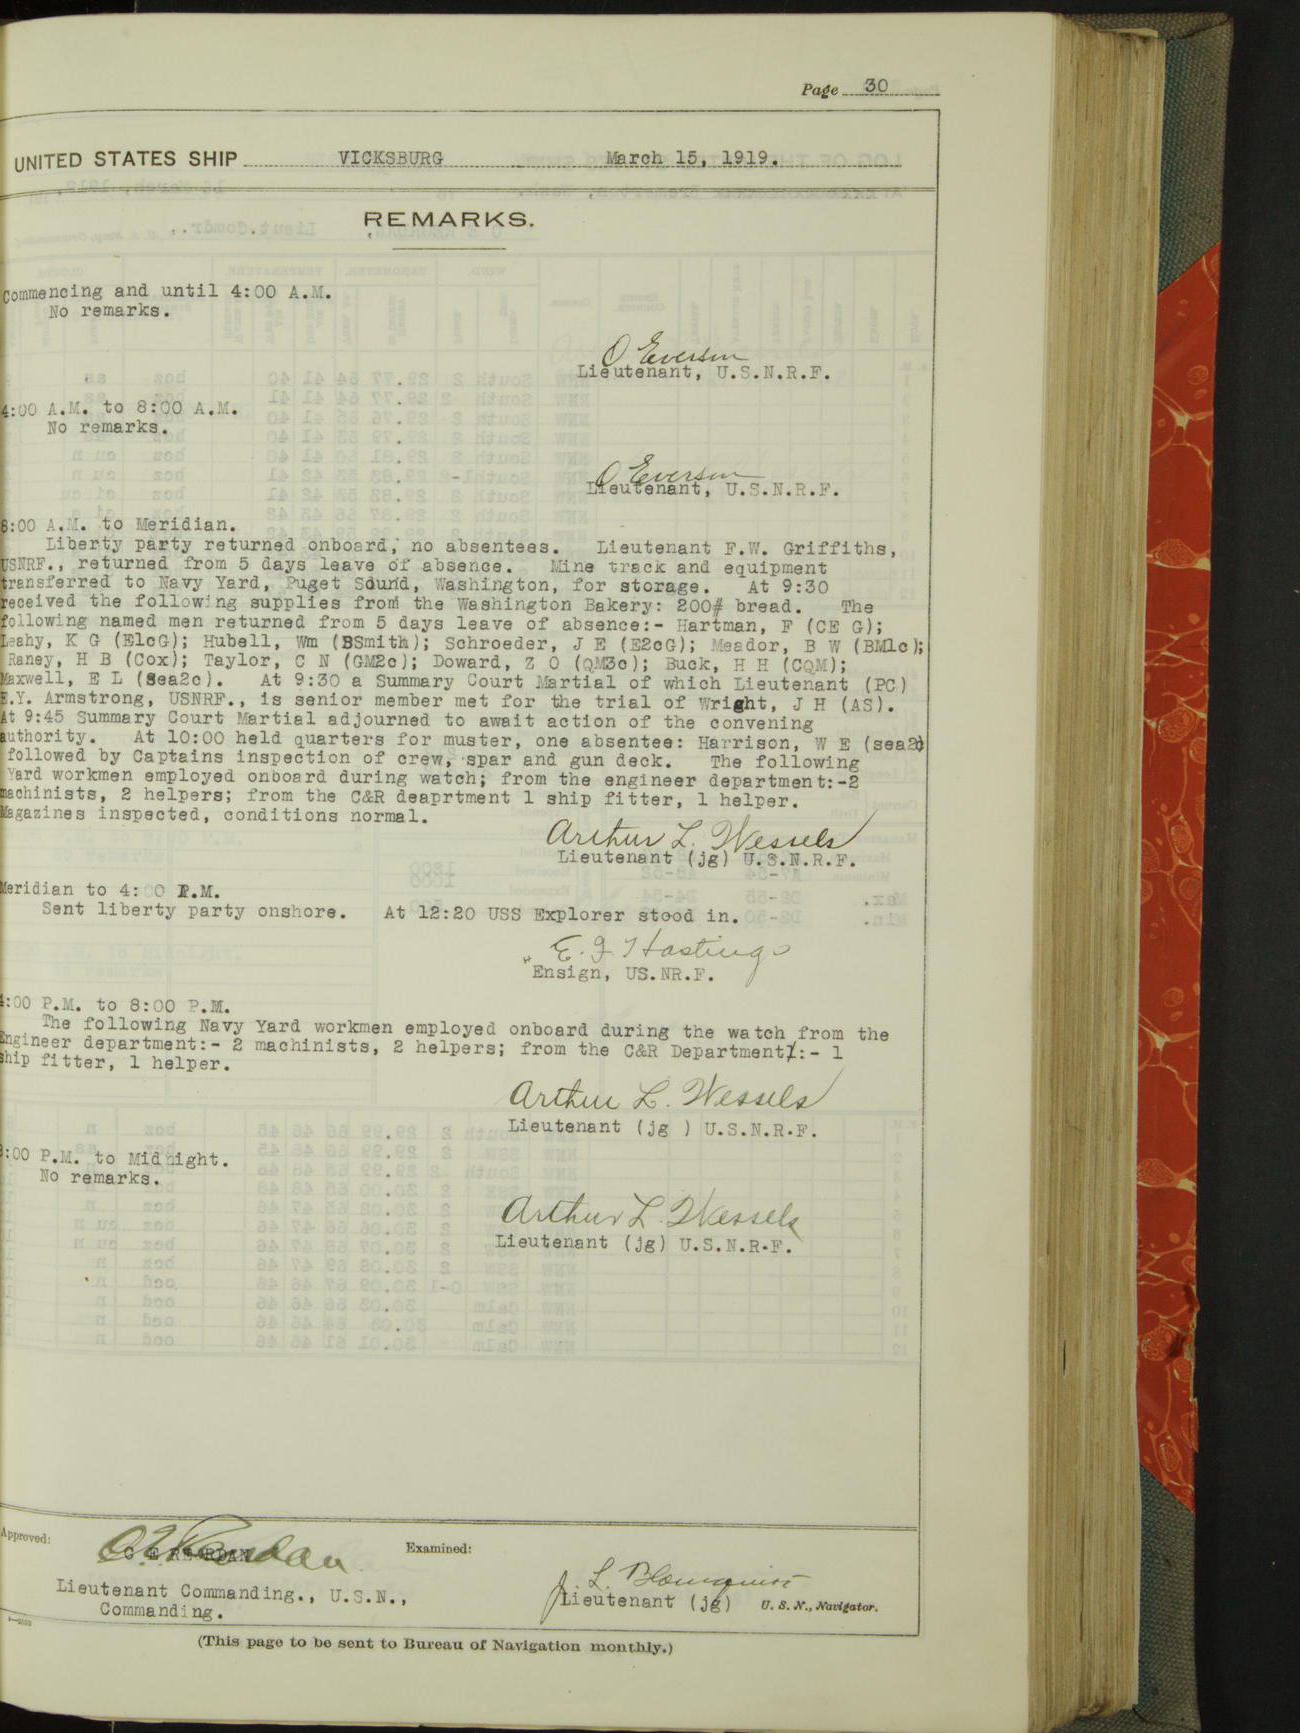 Page 30
UNITED STATES SHIP VICKSBURG March 15, 1919.
REMARKS.
Commencing and until 4:00 A.M.
No remarks.
O Everson
Lieutenant, U.S.N.R.F.
4:00 A.M. to 8:00 A.M.
No remarks.
O Everson
Lieutenant, U.S.N.R.F.
8:00 A.M. to Meridian.
Liberty party returned onboard, no absentees. Lieutenant F.W. Griffiths,
USNRF., returned from 5 days leave of absence. Mine track and equipment
transferred to Navy Yard, Puget Sound, Washington, for storage. At 9:30
received the following supplies from the Washington Bakery: 200# bread. The
following named men returned from 5 days leave of absence:- Hartman, F (CE G);
Leahy, K G (E1cG); Hubell, Wm (BSmith); Schroeder, J E (E2cG); Meador, B W (BM1c);
Raney, H B (Cox); Taylor, C N (GM2c); Doward, Z O (QM3c); Buck, H H (CQM);
Maxwell, E L (Sea2c). At 9:30 a Summary Court Martial of which Lieutenant (PC)
E.Y. Armstrong, USNRF., is senior member met for the trial of Wright, J H (AS).
At 9:45 Summary Court Martial adjourned to await action of the convening
authority. At 10:00 held quarters for muster, one absentee: Harrison, W E (sea2c)
followed by Captains inspection of crew, spar and gun deck. The following
Yard workmen employed onboard during watch; from the engineer department:-2
machinists, 2 helpers; from the C&R deaprtment 1 ship fitter, 1 helper.
Magazines inspected, conditions normal.
Arthur L. Wessels
Lieutenant (jg) U.S.N.R.F.
Meridian to 4:00 P.M.
Sent liberty party onshore. At 12:20 USS Explorer stood in.
E. J Hastings
Ensign, US.NR.F.
4:00 P.M. to 8:00 P.M.
The following Navy Yard workmen employed onboard during the watch from the
Engineer department:- 2 machinists, 2 helpers; from the C&R Department:- 1
ship fitter, 1 helper.
Arthur L. Wessels
Lieutenant (jg ) U.S.N.R.F.
8:00 P.M. to Midnight.
No remarks.
Arthur L. Wessels
Lieutenant (jg) U.S.N.R.F.
Approved:
C E REORDAN
Examined:
J. L. Blomquist
Lieutenant Commanding., U.S.N.,
Commanding.
Lieutenant (jg) U. S. N., Navigator.
(This page to be sent to Bureau of Navigation monthly.)